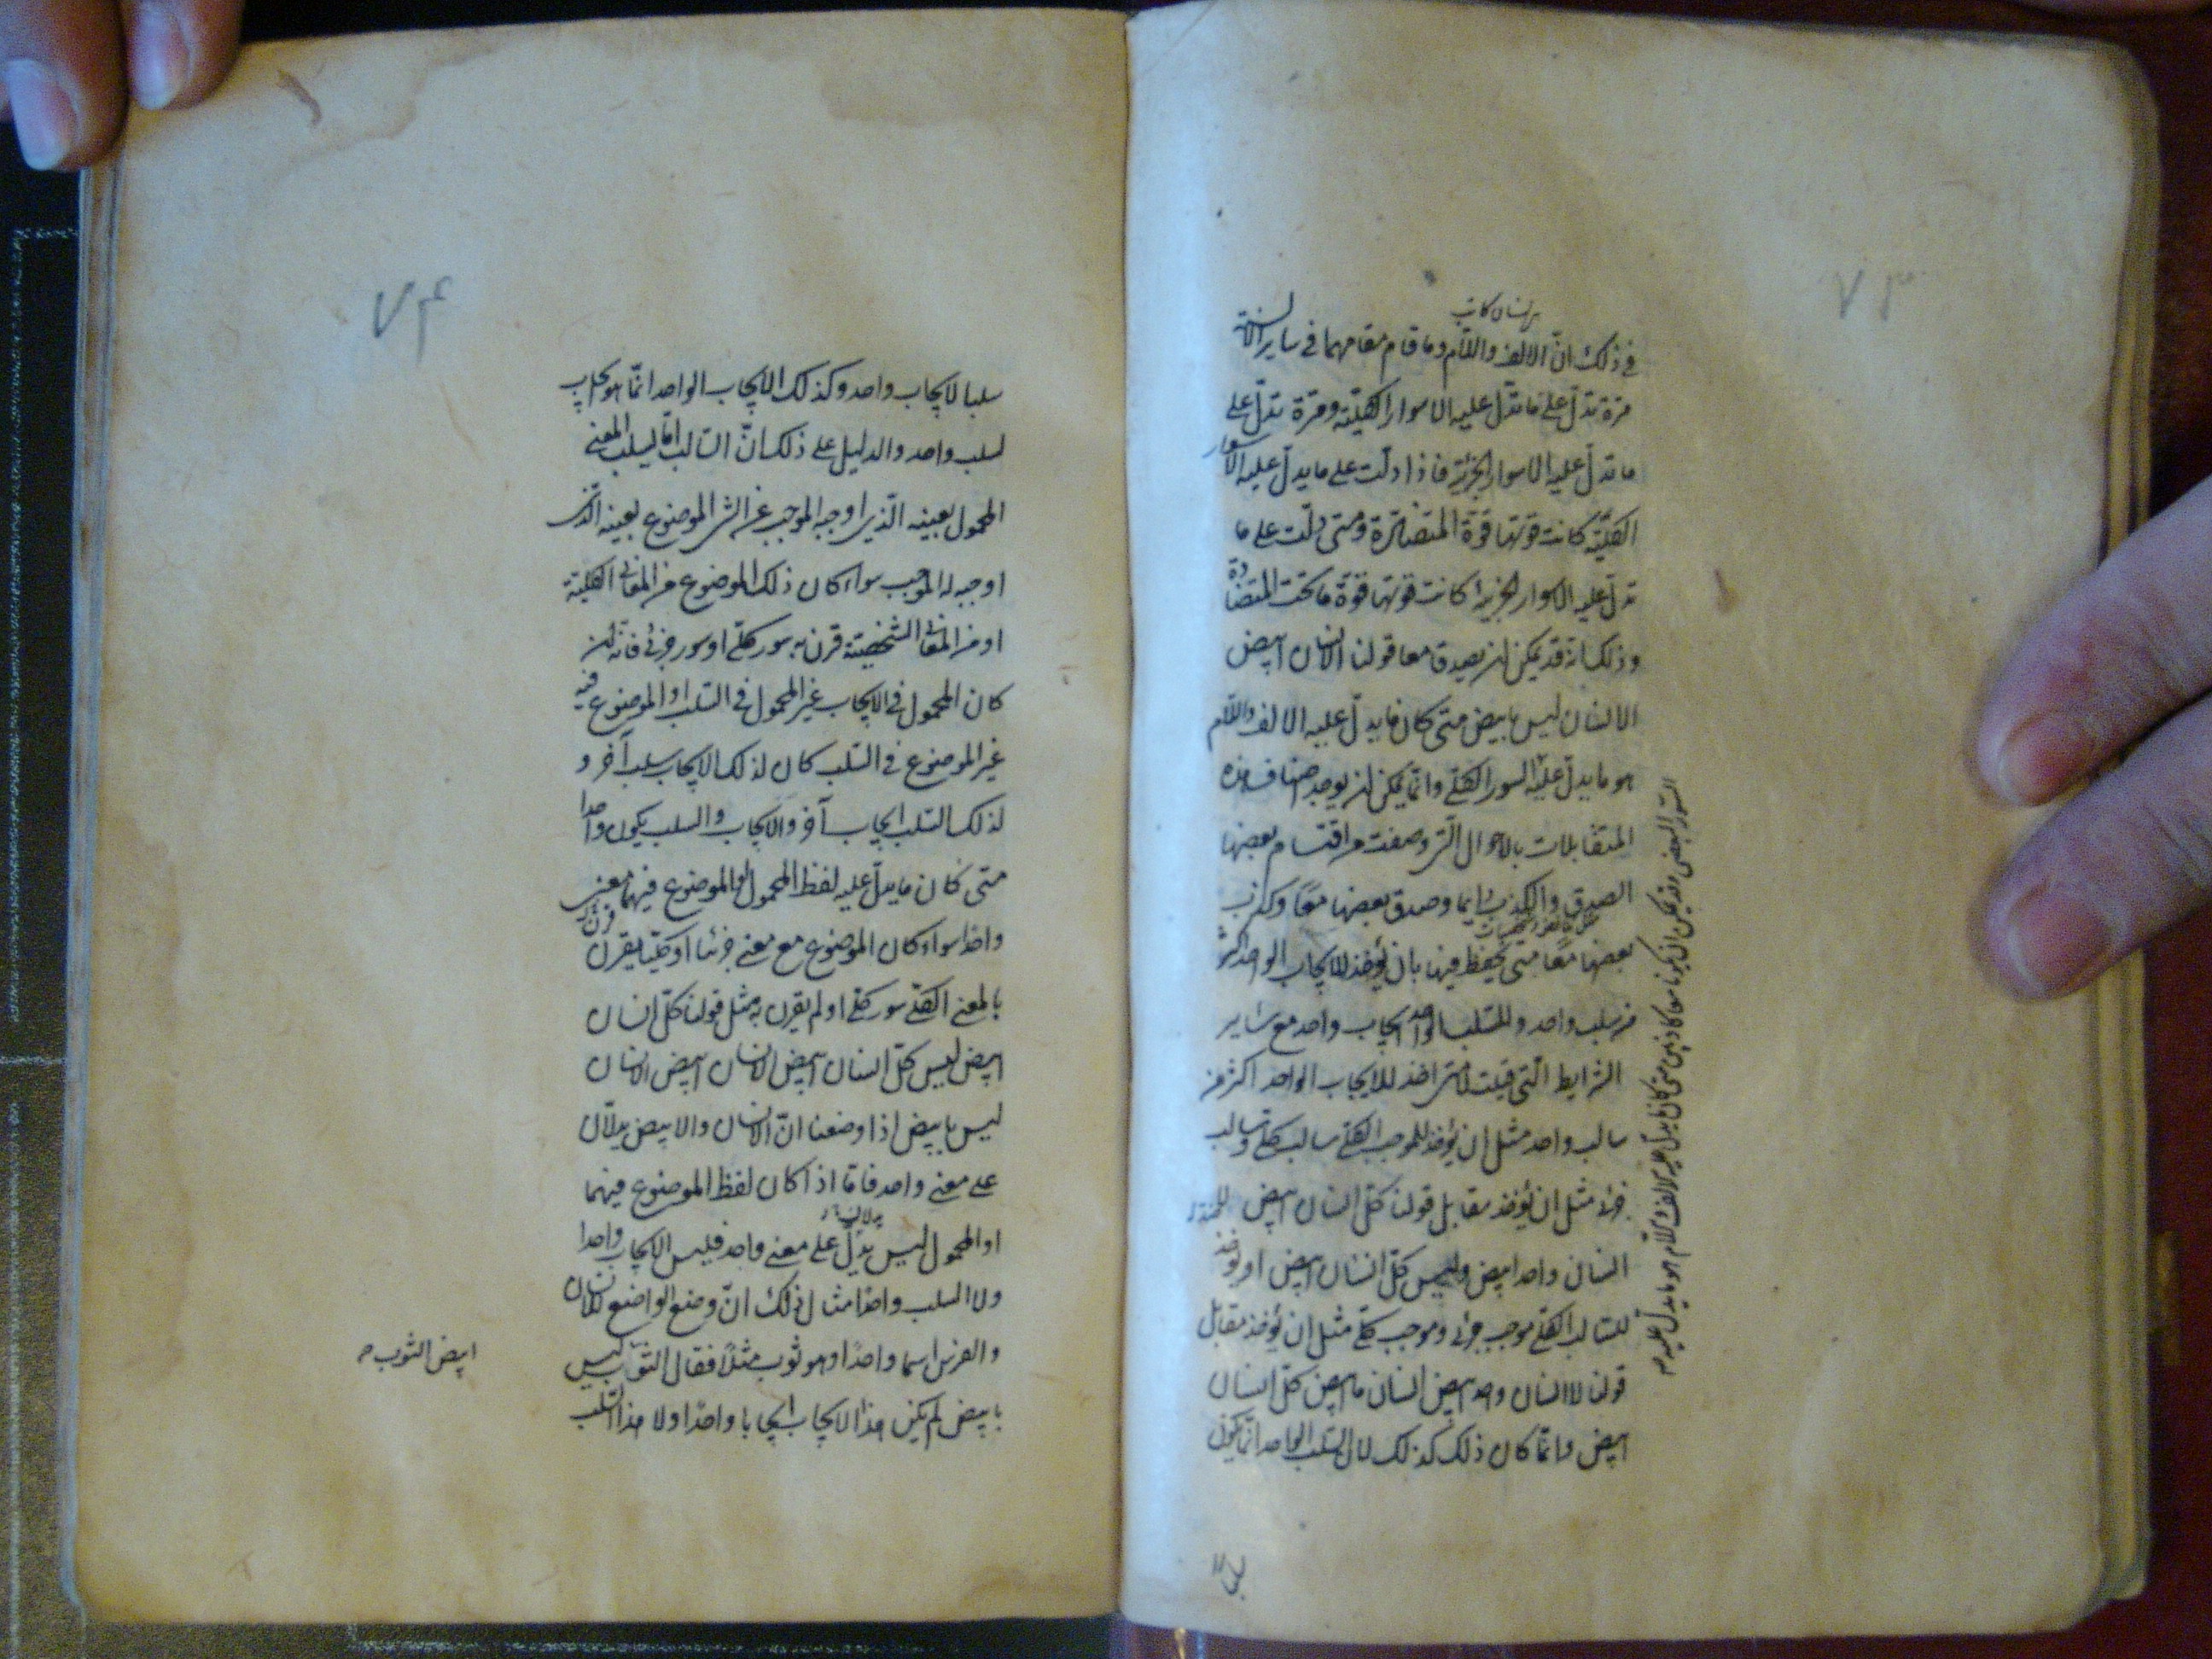 ۷۳
في ذلك ان الالف واللام وما قام مقامهما في ساير الالسنة
مرة تدل على ما تدل عليه الاسوار الكلية ومرة تدل على
ما تدل عليه الاسوار الجزئية فاذا دلت على ما يدل عليه الاسوار
الكلية كانت قوتها قوة المتضادة ومتى دلت على ما
تدل عليه الاسوار الجزئية كانت قوتها قوة ما تحت المتضادة
وذلك انه قد يمكن ان يصدق معا قولنا الانسان ابيض
الانسان ليس بابيض متى كان ما يدل عليه الالف واللام
هو ما يدل عليه السور الكلي وانما يمكن ان يوجد اصناف هذه
المتقابلات بالاحوال التي وصفت من اقتسام بعضها
الصدق والكذب دايما وصدق بعضها معا وكذب
بعضها معا متى تحفظ فيها بان يؤخذ للايجاب الواحد اكثر
من سلب واحد وللسلب الواحد ايجاب واحد مع ساير
الشرايط التي قيلت لا متى اخذ للايجاب الواحد اكثر من
سالب واحد مثل ان يؤخذ للموجب الكلي سالب كلي وسالب
جزئي مثل ان يؤخذ مقابل قولنا كل انسان ابيض
انسان واحد ابيض وليس كل انسان ابيض او يؤخذ
للسالب الكلي موجب جزئي وموجب كلي مثل ان يؤخذ مقابل
قولنا لا انسان واحد ابيض انسان ما ابيض كل انسان
ابيض وانما كان ذلك كذلك لان السلب الواحد انما يكون
السور البعضي وقد يمكن ان يكونا معا كاذبين متى كان ما يدل عليه الالف واللام هو ما يدل عليه
۷۴
سلبا لايجاب واحد وكذلك الايجاب الواحد انما هو ايجاب
لسلب واحد والدليل على ذلك ان السالب انما يسلب المعنى
المحمول بعينه الذي اوجبه الموجب عن الشئ الموضوع بعينه الذي
اوجبه له الموجب سواء كان ذلك الموضوع من المعاني الكلية
او من المعاني الشخصية قرن به سور كلي او سور جزئي فانه ان
كان المحمول في الايجاب غير المحمول في السلب او الموضوع فيه
غير الموضوع في السلب كان لذلك الايجاب سلب آخر و
لذلك السلب ايجاب آخر والايجاب والسلب يكون واحدا
متى كان ما يدل عليه لفظ المحمول والموضوع فيهما معنى
واحدا سواء كان الموضوع مع معنى جزئيا او كليا يقرن
بالمعنى الكلي سور كلي او لم يقرن به مثل قولنا كل انسان
ابيض ليس كل انسان ابيض الانسان ابيض الانسان
ليس بابيض اذا وضعنا ان الانسان والابيض يدلان
على معنى واحد فاما اذا كان لفظ الموضوع فيهما
او المحمول ليس يدل على معنى واحد فليس الايجاب واحدا
ولا السلب واحدا مثال ذلك ان وضع الواضع للانسان
والفرس اسما واحدا وهو ثوب مثلا فقال الثوب ليس
ابيض الثوب
بابيض لم يكن هذا الايجاب ايجابا واحدا ولا هذا السلب